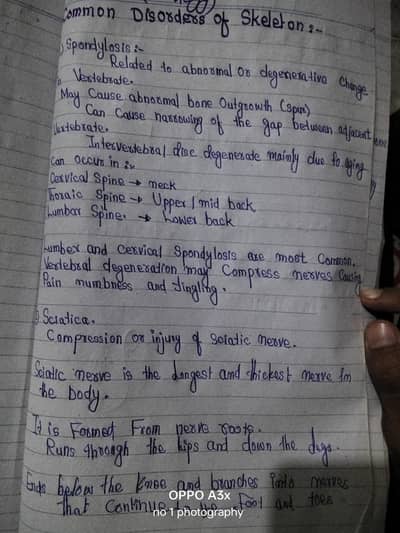 Common Disorders of Skeleton:-
Spondylosis:-
Related to abnormal or degenerative change
in Vertebrate.
May Cause abnormal bone Outgrowth (Spur)
Can Cause narrowing of the gap between adjacent
Vertebrate.
Intervertebral disc degenerate mainly due to aging
Can occur in:-
Cervical Spine → neck
Thoraic Spine → Upper / mid back
Lumbar Spine. → Lower back
Lumber and Cervical Spondylosis are most Common.
Vertebral degeneration may Compress nerves Causing
Pain numbness and tingling.
Sciatica.
Compression or injury of Sciatic nerve.
Sciatic nerve is the longest and thickest nerve in
the body.
It is Formed From nerve roots.
Runs through the hips and down the legs.
Ends below the knee and branches into nerves
that continue to the foot and toes
OPPO A3x
no 1 photography